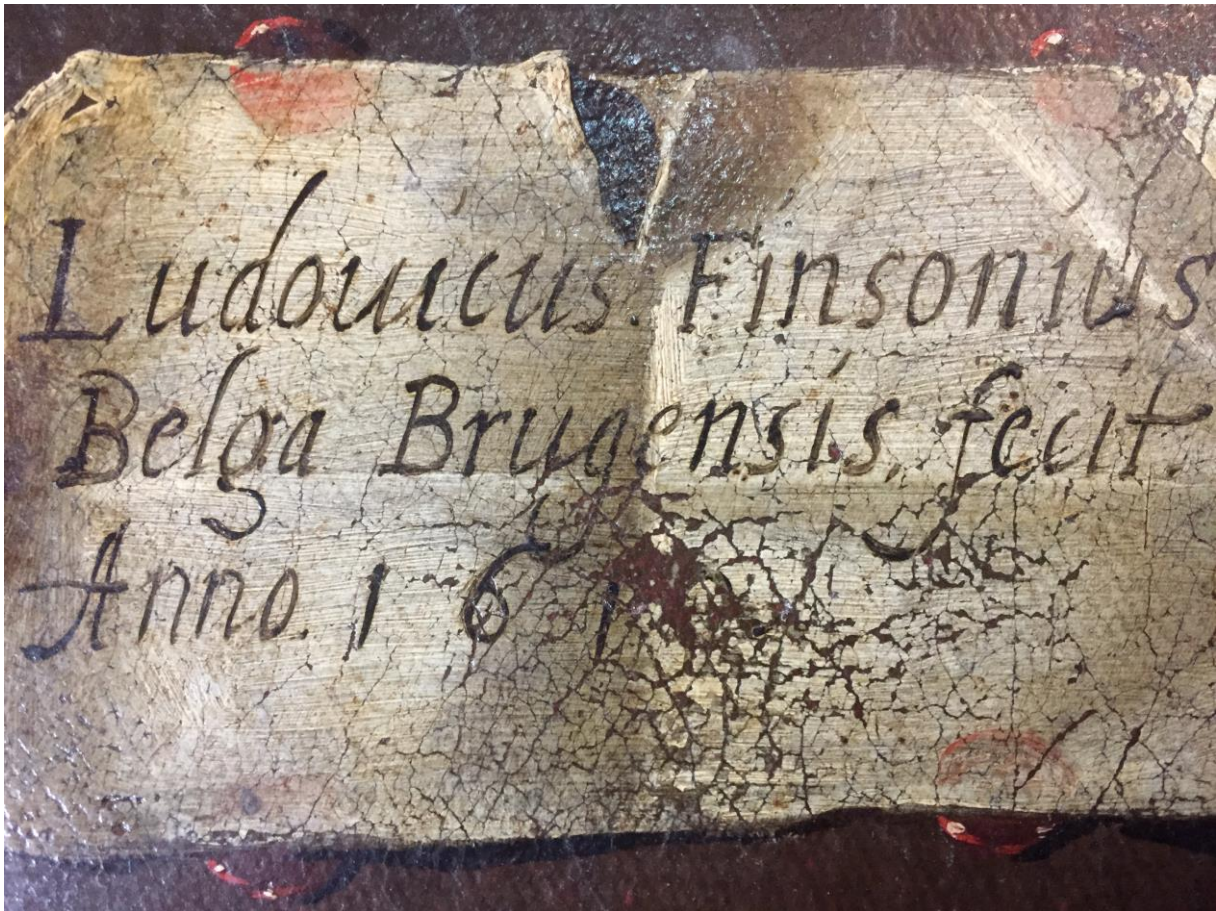 Ludouicus. Finsonius
Belga Brugensis. fecit.
Anno. 161